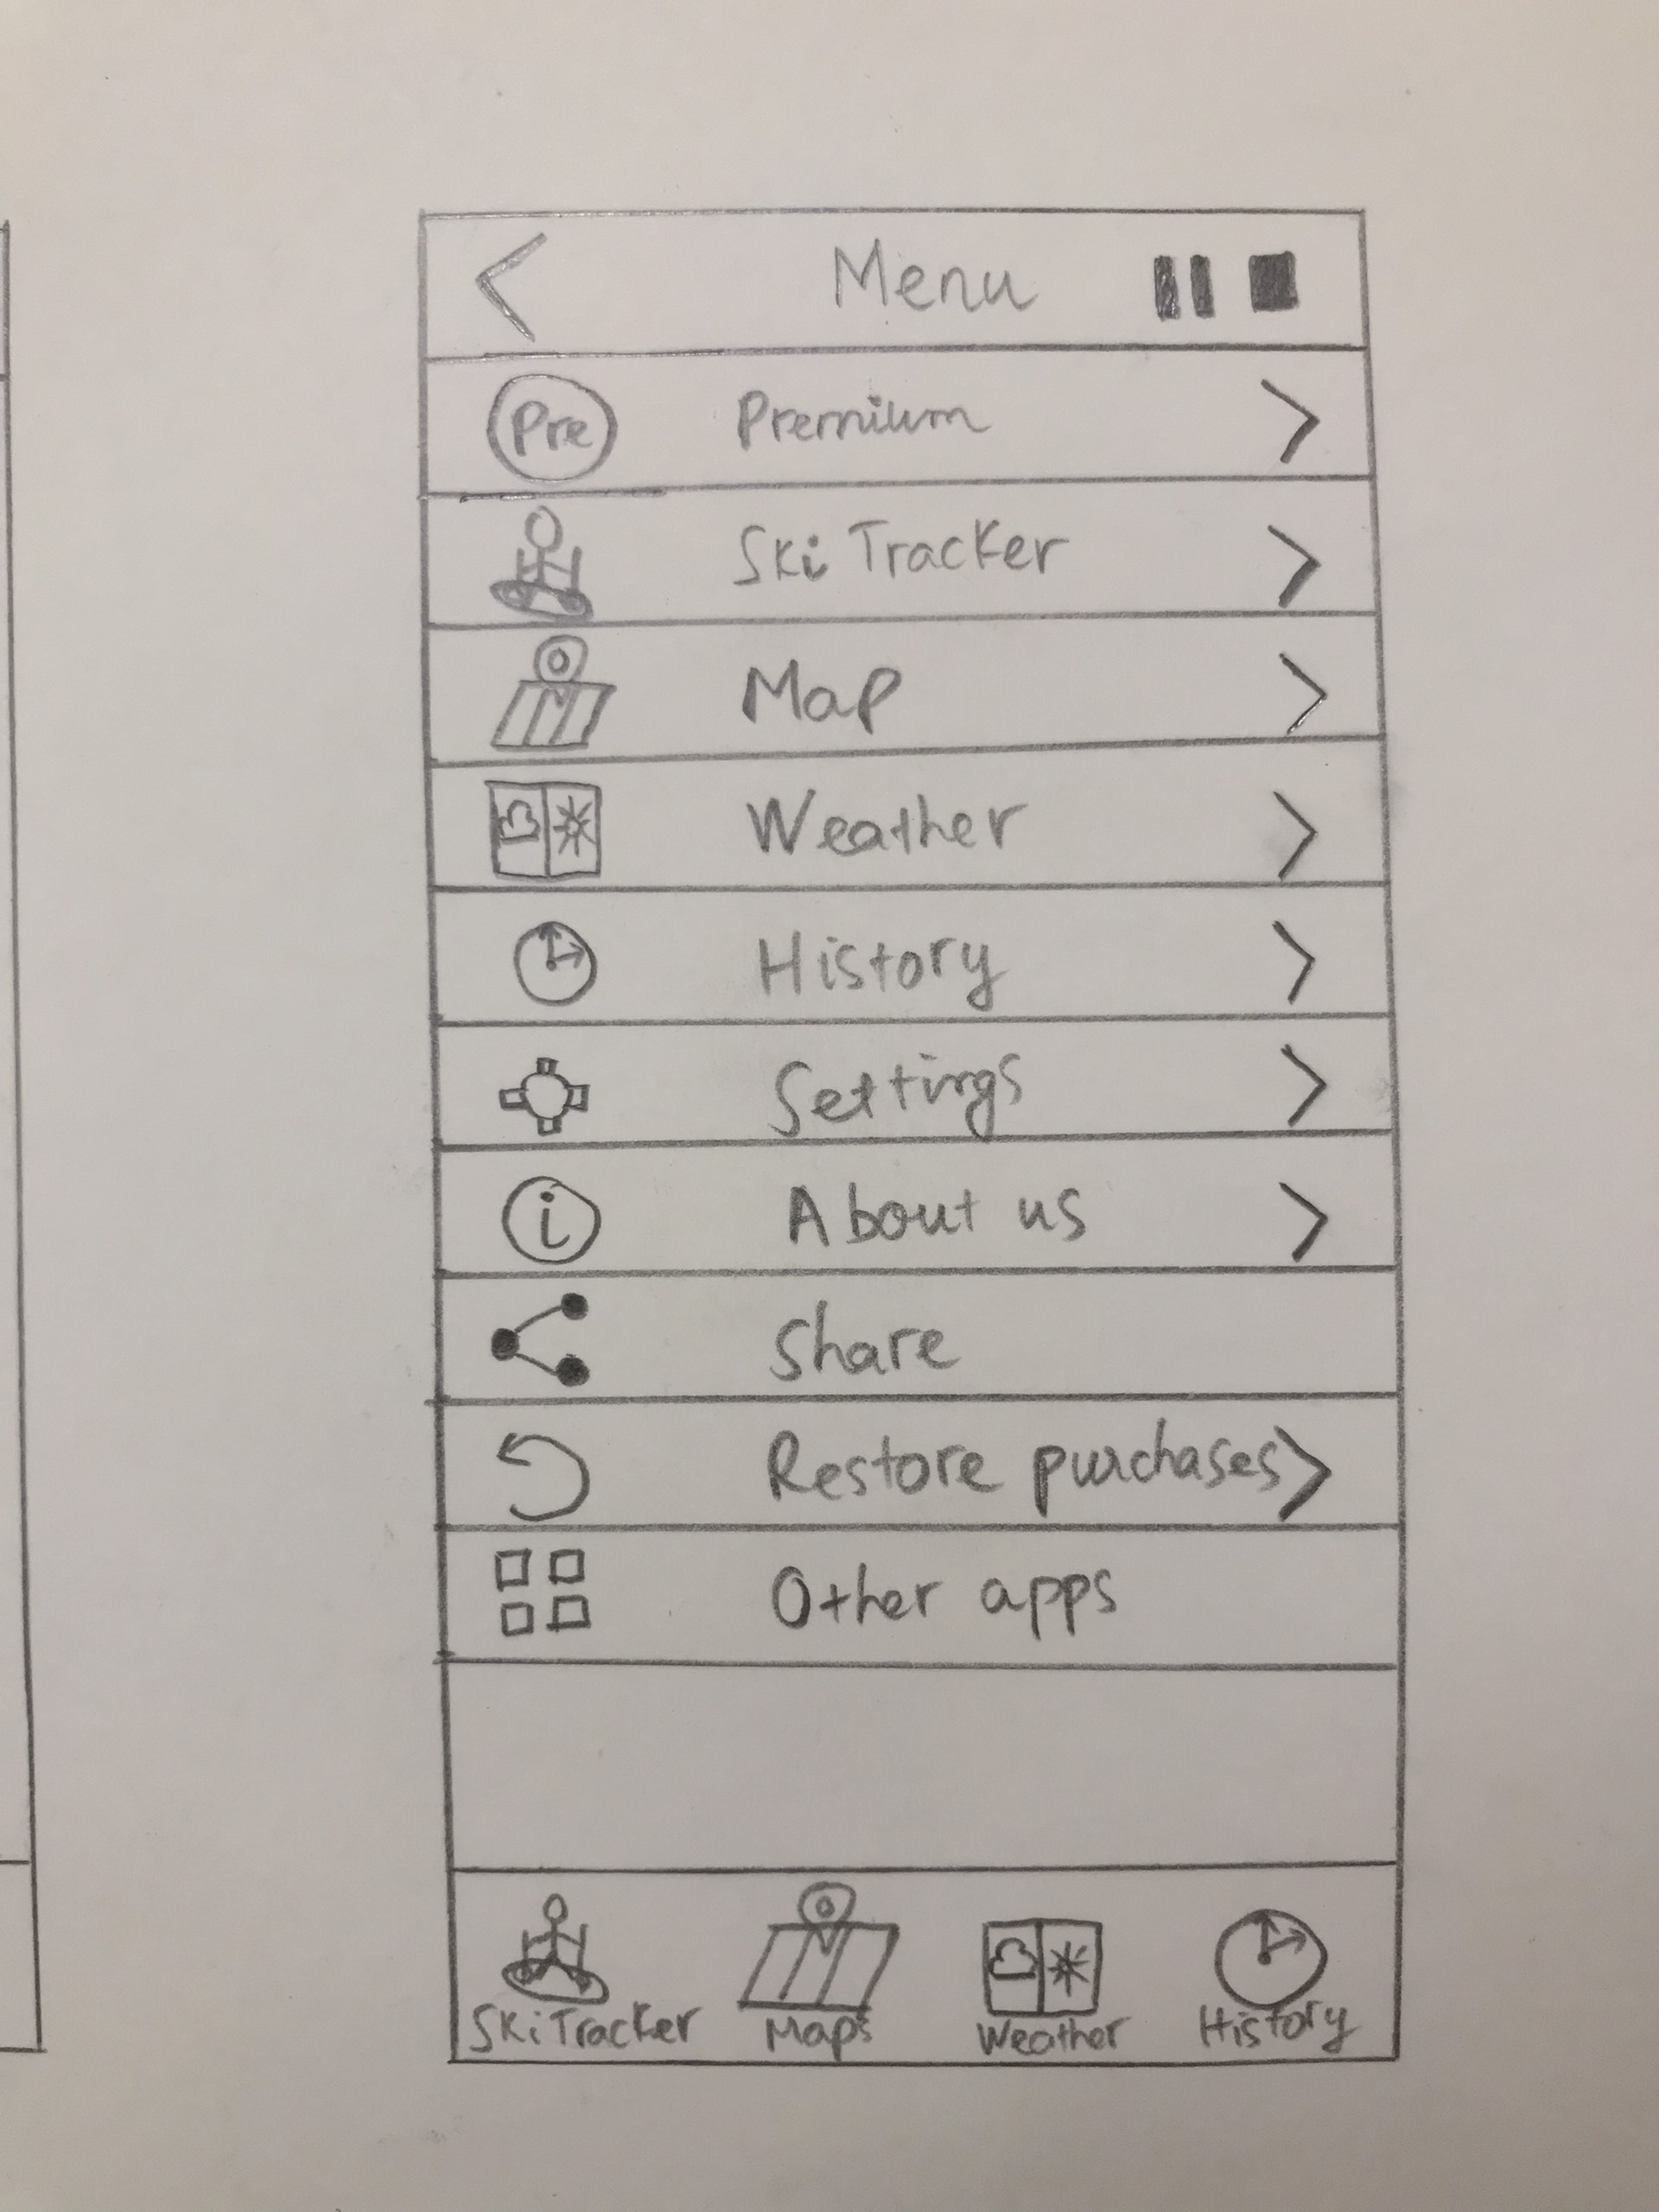 Menu
Pre Premium
Ski Tracker
Map
Weather
History
Settings
i About us
Share
Restore purchases
Other apps
Ski Tracker Maps Weather History